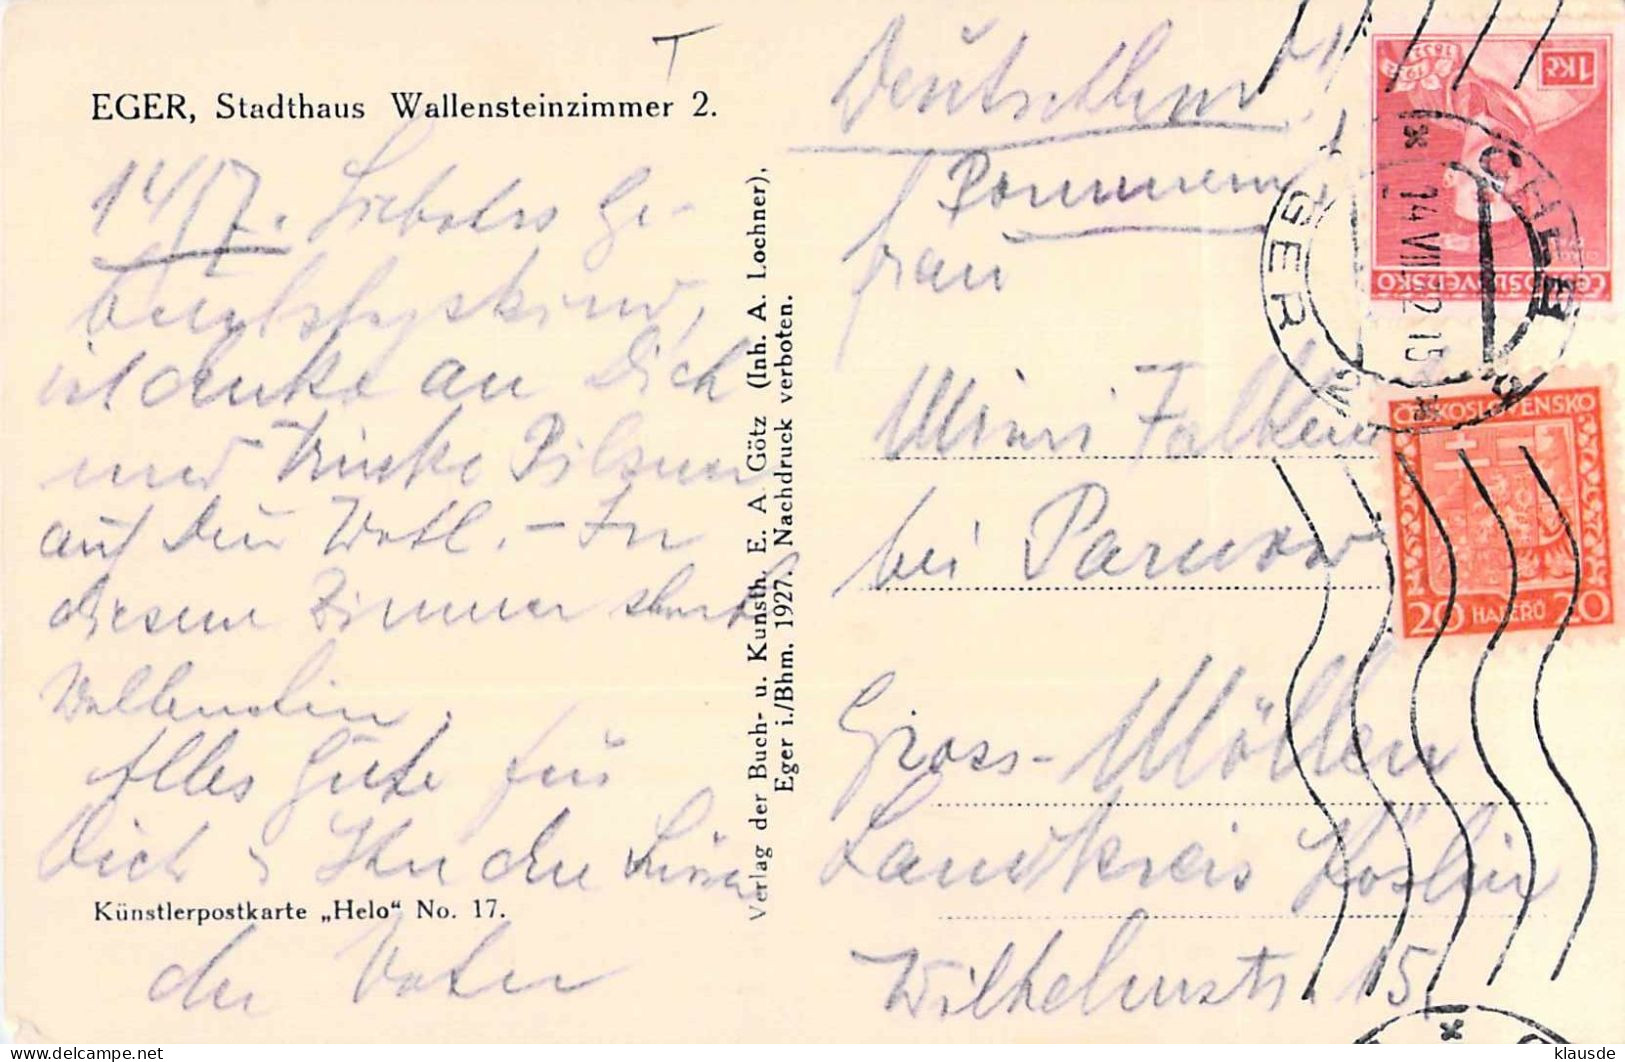 EGER, Stadthaus Wallensteinzimmer 2.
14/7. Liebstes Ge-
burtstagskind,
ich denke an Dich
und trinke Pilsner
auf Dein Wohl. - In
diesem Zimmer starb
Wallenstein.
Alles Gute für
Dich
der Vater
Künstlerpostkarte „Helo" No. 17.
Verlag der Buch- u. Kunsth. E. A. Götz (Inh. A. Lochner),
Eger i./Bhm. 1927. Nachdruck verboten.
Deutschland
Pommern
Frau
Mimi Falken
bei Parnow
Gross-Möllen
Landkreis Köslin
Wilhelmstr. 15
1 Kč
1832 1932
ČESKOSLOVENSKO
CHEB
EGER
14 VII 32 15
ČESKOSLOVENSKO
20 HALÉŘŮ 20
klausde